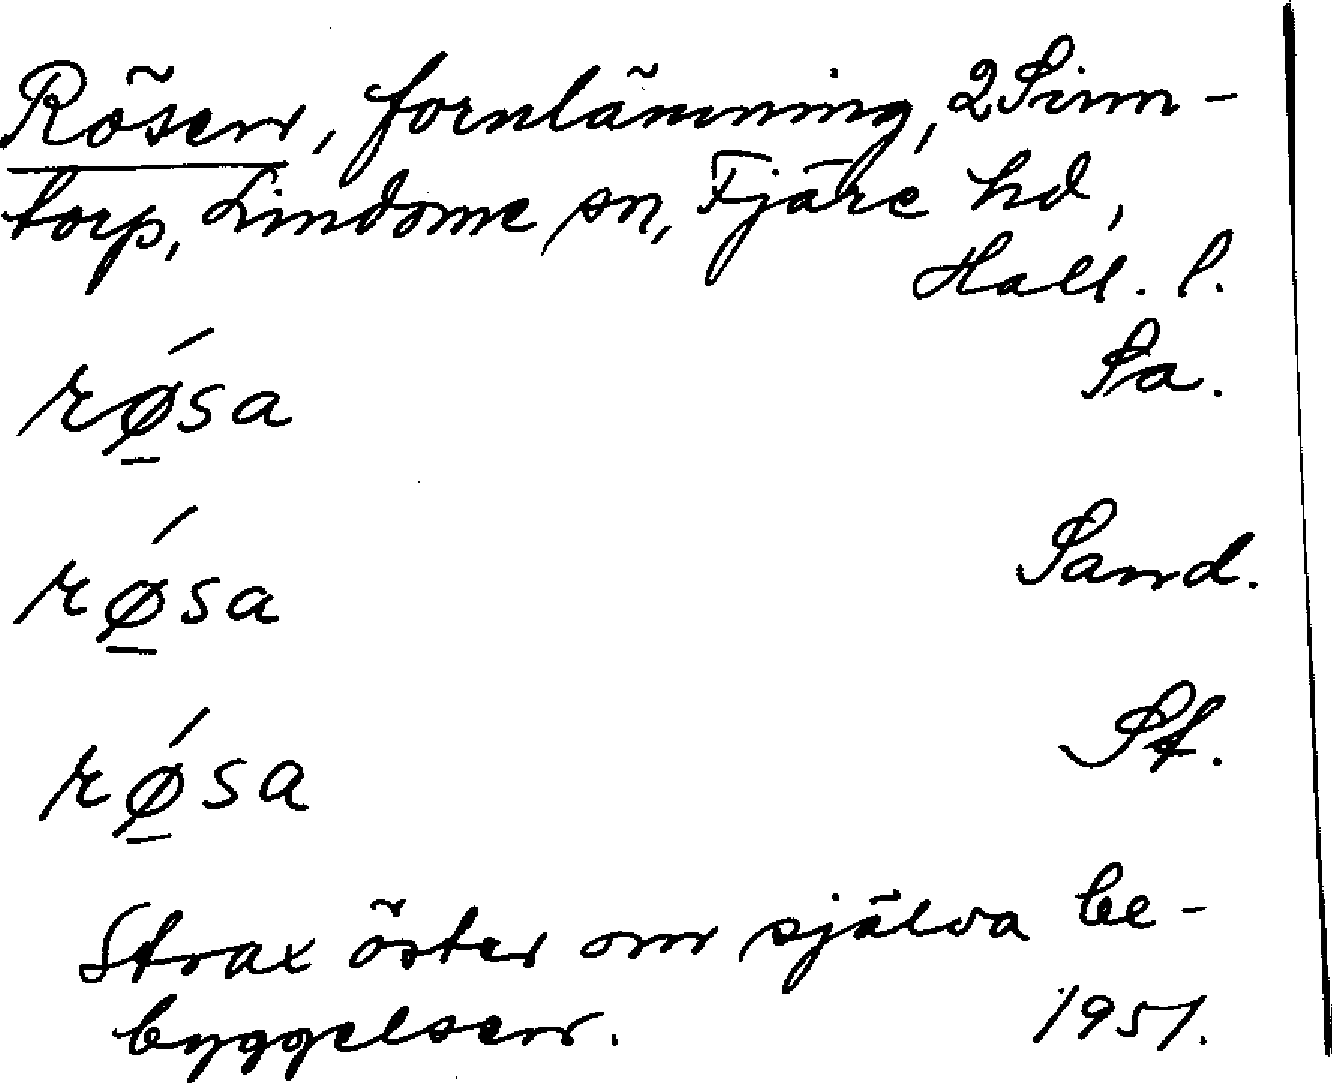 Rösen, fornlämning, 2 Sinn-
torp, Lindome sn, Fjäre hd,
Hall. l.
rǿ̲sa Sa.
rǿ̲sa Sand.
rǿ̲sa St.
Strax öster om själva be-
byggelsen. 1951.